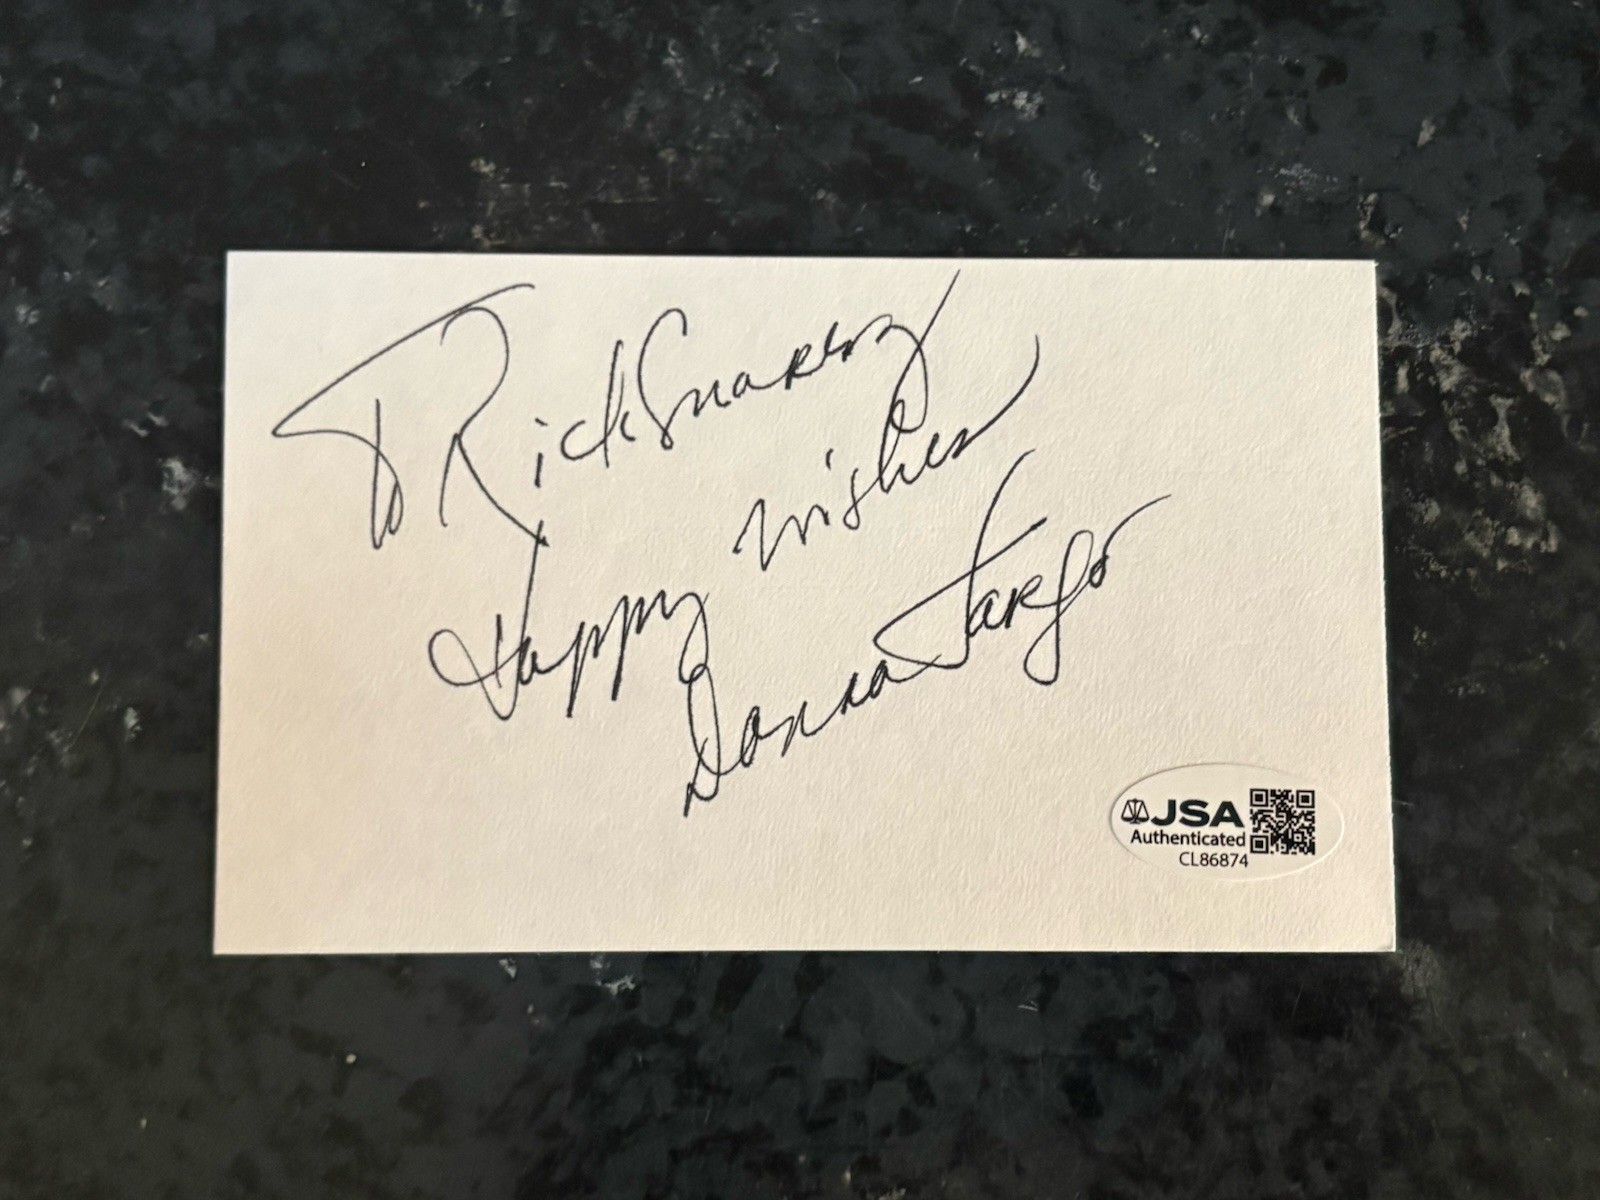 To Rick Suarez
Happy Wishes
Donna Fargo
JSA
Authenticated
CL86874